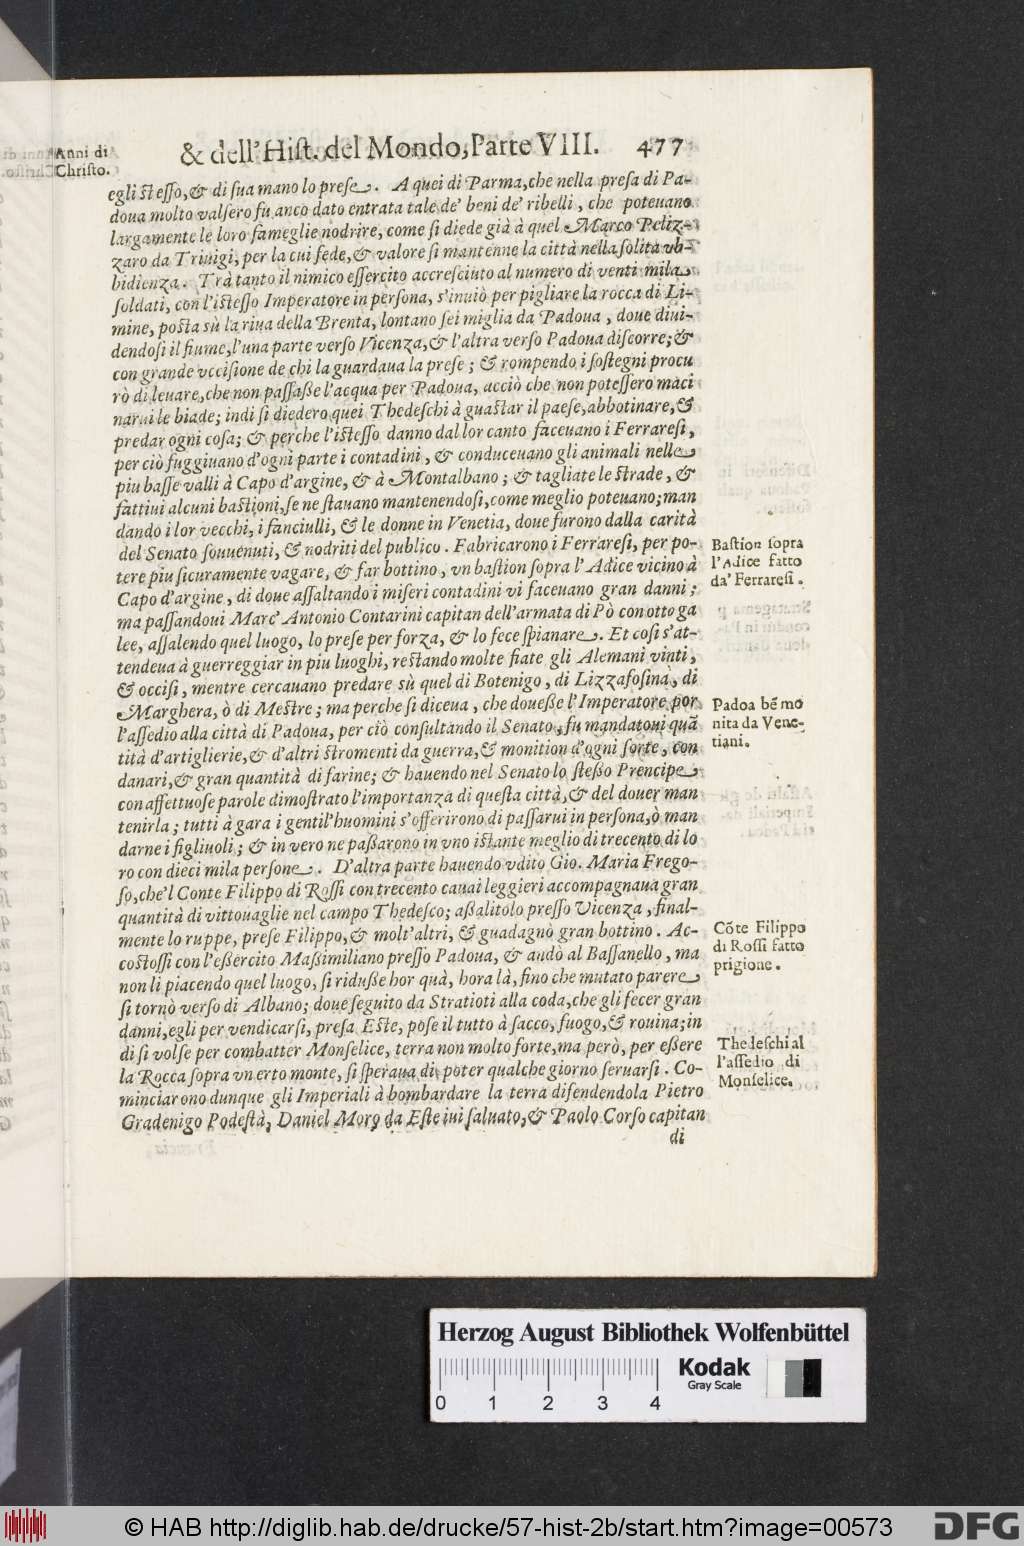 Anni di
Christo.
& dell'Hist. del Mondo, Parte VIII. 477
egli ſteſſo, & di ſua mano lo preſe. A quei di Parma, che nella preſa di Pa-
doua molto valſero fu anco dato entrata tale de' beni de' ribelli, che poteuano
largamente le loro fameglie nodrire, come ſi diede già à quel Marco Peliz-
zaro da Triuigi, per la cui fede, & valore ſi mantenne la città nella ſolita vb-
bidienza. Trà tanto il nimico eſſercito accreſciuto al numero di venti mila
ſoldati, con l'iſteſſo Imperatore in perſona, s'inuiò per pigliare la rocca di Li-
mine, poſta sù la riua della Brenta, lontano ſei miglia da Padoua, doue diui-
dendoſi il fiume, l'una parte verſo Vicenza, & l'altra verſo Padoua diſcorre; &
con grande vcciſione de chi la guardaua la preſe; & rompendo i ſoſtegni procu
rò di leuare, che non paſſaße l'acqua per Padoua, acciò che non poteſſero maci
narui le biade; indi ſi diedero quei Thedeſchi à guaſtar il paeſe, abbotinare, &
predar ogni coſa; & perche l'iſteſſo danno dal lor canto faceuano i Ferrareſi,
per ciò fuggiuano d'ogni parte i contadini, & conduceuano gli animali nelle
piu baſſe valli à Capo d'argine, & à Montalbano; & tagliate le ſtrade, &
fattini alcuni baſtioni, ſe ne ſtauano mantenendoſi, come meglio poteuano; man
dando i lor vecchi, i fanciulli, & le donne in Venetia, doue furono dalla carità
del Senato ſouuenuti, & nodriti del publico. Fabricarono i Ferrareſi, per po-
tere piu ſicuramente vagare, & far bottino, vn baſtion ſopra l'Adice vicino à
Capo d'argine, di doue aſſaltando i miſeri contadini vi faceuano gran danni;
ma paſſandoui Marc' Antonio Contarini capitan dell'armata di Pò con otto ga
lee, aſſalendo quel luogo, lo preſe per forza, & lo fece ſpianare. Et coſi s'at-
tendeua à guerreggiar in piu luoghi, reſtando molte fiate gli Alemani vinti,
& occiſi, mentre cercauano predare sù quel di Botenigo, di Lizzafoſina, di
Marghera, ò di Meſtre; ma perche ſi diceua, che doueße l'Imperatore por
l'aſſedio alla città di Padoua, per ciò conſultando il Senato, fu mandatoui quã
tità d'artiglierie, & d'altri ſtromenti da guerra, & monition d'ogni ſorte, con
danari, & gran quantità di farine; & hauendo nel Senato lo ſteßo Prencipe
con affettuoſe parole dimoſtrato l'importanza di queſta città, & del douer man
tenirla; tutti à gara i gentil'huomini s'offerirono di paſſarui in perſona, ò man
darne i figliuoli; & in vero ne paßarono in vno iſtante meglio di trecento di lo
ro con dieci mila perſone. D'altra parte hauendo vdito Gio. Maria Frego-
ſo, che'l Conte Filippo di Roſſi con trecento caual leggieri accompagnaua gran
quantità di vittouaglie nel campo Thedeſco; aßalitolo preſſo Vicenza, final-
mente lo ruppe, preſe Filippo, & molt'altri, & guadagnò gran bottino. Ac-
coſtoſſi con l'eßercito Maßimiliano preſſo Padoua, & andò al Baſſanello, ma
non li piacendo quel luogo, ſi riduße hor quà, hora là, fino che mutato parere
ſi tornò verſo di Albano; doue ſeguito da Stratioti alla coda, che gli fecer gran
danni, egli per vendicarſi, preſa Eſte, poſe il tutto à ſacco, fuogo, & rouina; in
di ſi volſe per combatter Monſelice, terra non molto forte, ma però, per eßere
la Rocca ſopra vn erto monte, ſi ſperaua di poter qualche giorno ſeruarſi. Co-
minciarono dunque gli Imperiali à bombardare la terra difendendola Pietro
Gradenigo Podeſtà, Daniel Moro da Eſte iui ſaluato, & Paolo Corſo capitan
di
Baſtion ſopra
l'Adice fatto
da' Ferrareſi.
Padoa bẽ mo
nita da Vene-
tiani.
Cõte Filippo
di Roſſi fatto
prigione.
Thedeſchi al
l'aſſedio di
Monſelice.
Herzog August Bibliothek Wolfenbüttel
Kodak
Gray Scale
0 1 2 3 4
© HAB http://diglib.hab.de/drucke/57-hist-2b/start.htm?image=00573
DFG